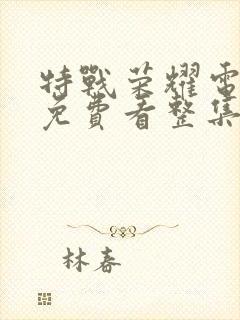 特戰荣耀電
免費看整集
林春